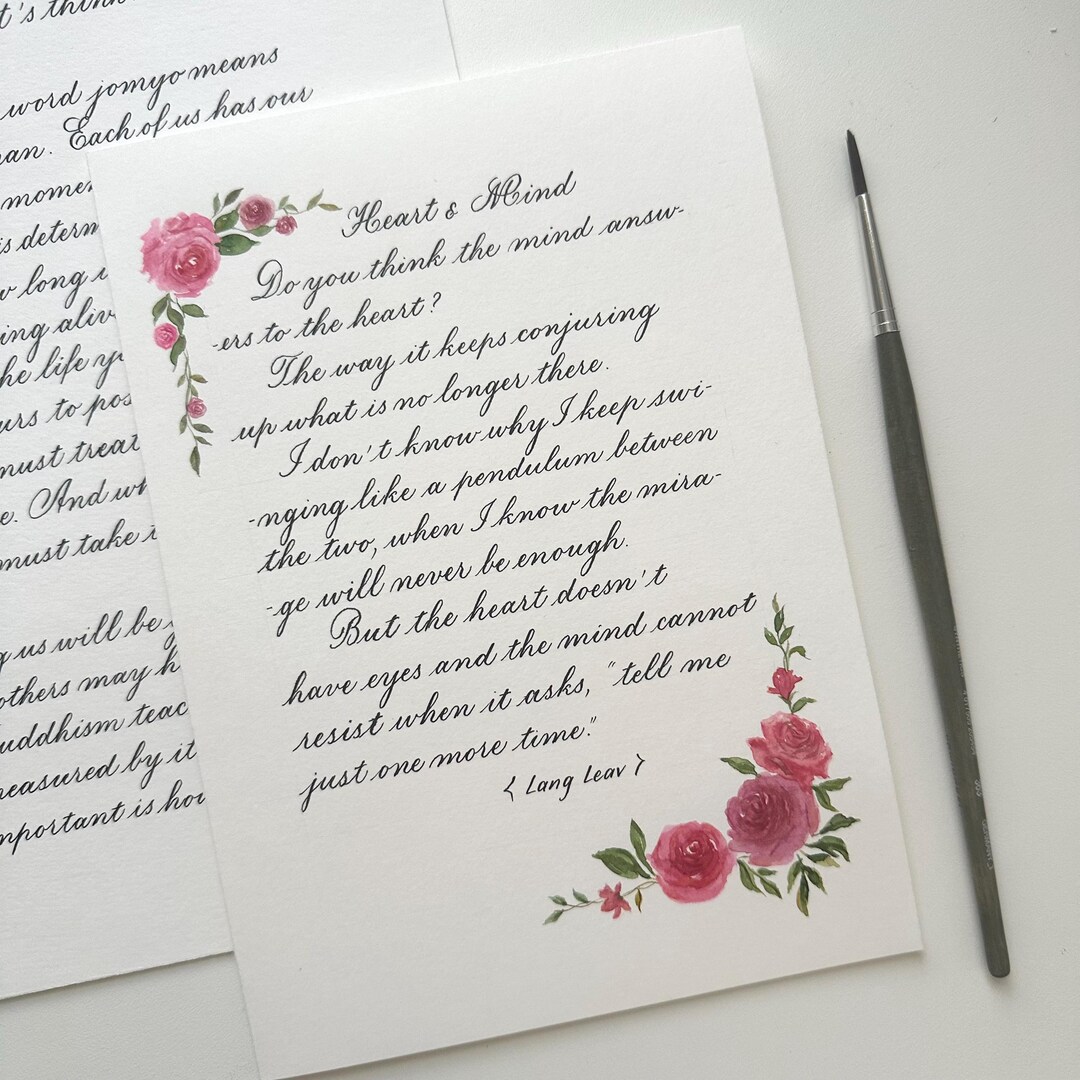 t's think
word jomyo means
an. Each of us has our
mome
is determ
long
ing aliv
he life y
urs to pos
must treat
e. And wh
must take i
g us will be
others may h
uddhism teac
easured by it
mportant is ho
Heart & Mind
Do you think the mind answ-
-ers to the heart?
The way it keeps conjuring
up what is no longer there.
I don't know why I keep swi-
-nging like a pendulum between
the two, when I know the mira-
-ge will never be enough.
But the heart doesn't
have eyes and the mind cannot
resist when it asks, "tell me
just one more time."
< Lang Leav >